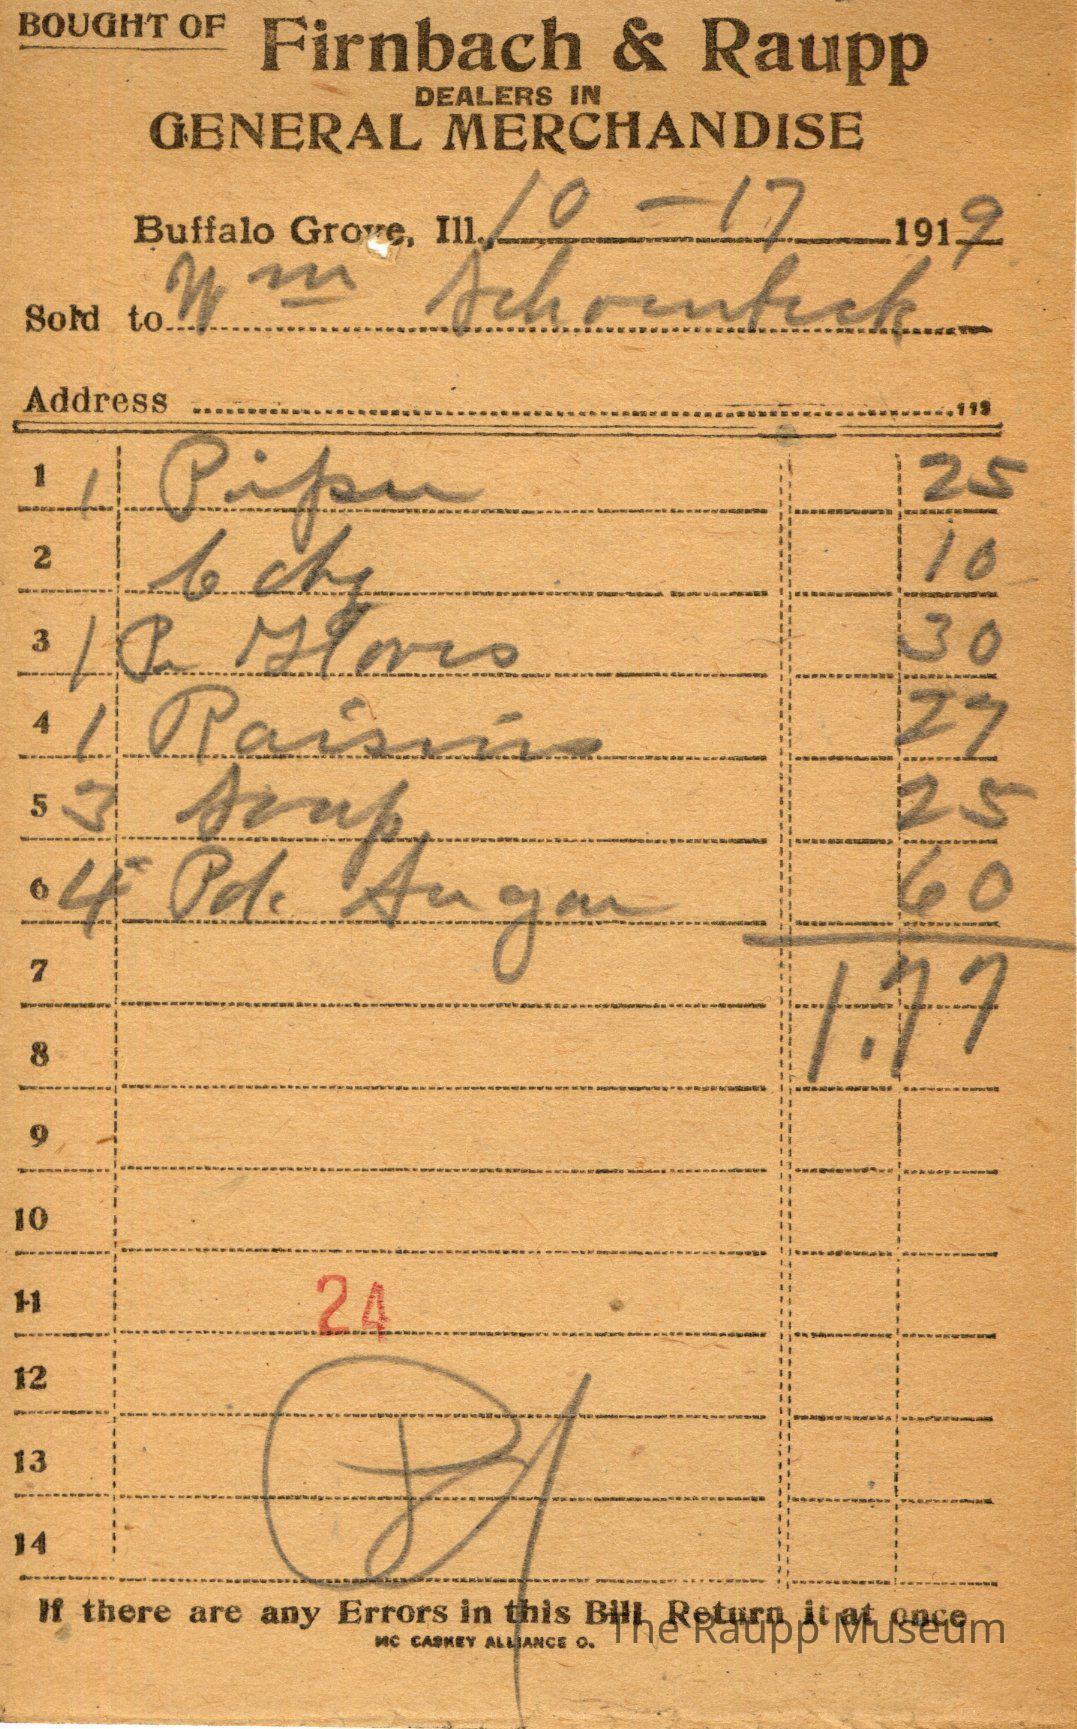 BOUGHT OF Firnbach & Raupp
DEALERS IN
GENERAL MERCHANDISE
Buffalo Grove, Ill., 10 - 17 1919
Sold to Wm
Address
1 1 25
2 10
3 1 Pr Gloves 30
4 1 Raisins 27
5 3 Soup 25
6 4 Pd. Sugar 60
7 1.77
8
9
10
11 24
12
13
14
If there are any Errors in this Bill Return it at once
MC CASKEY ALLIANCE O.
The Raupp Museum